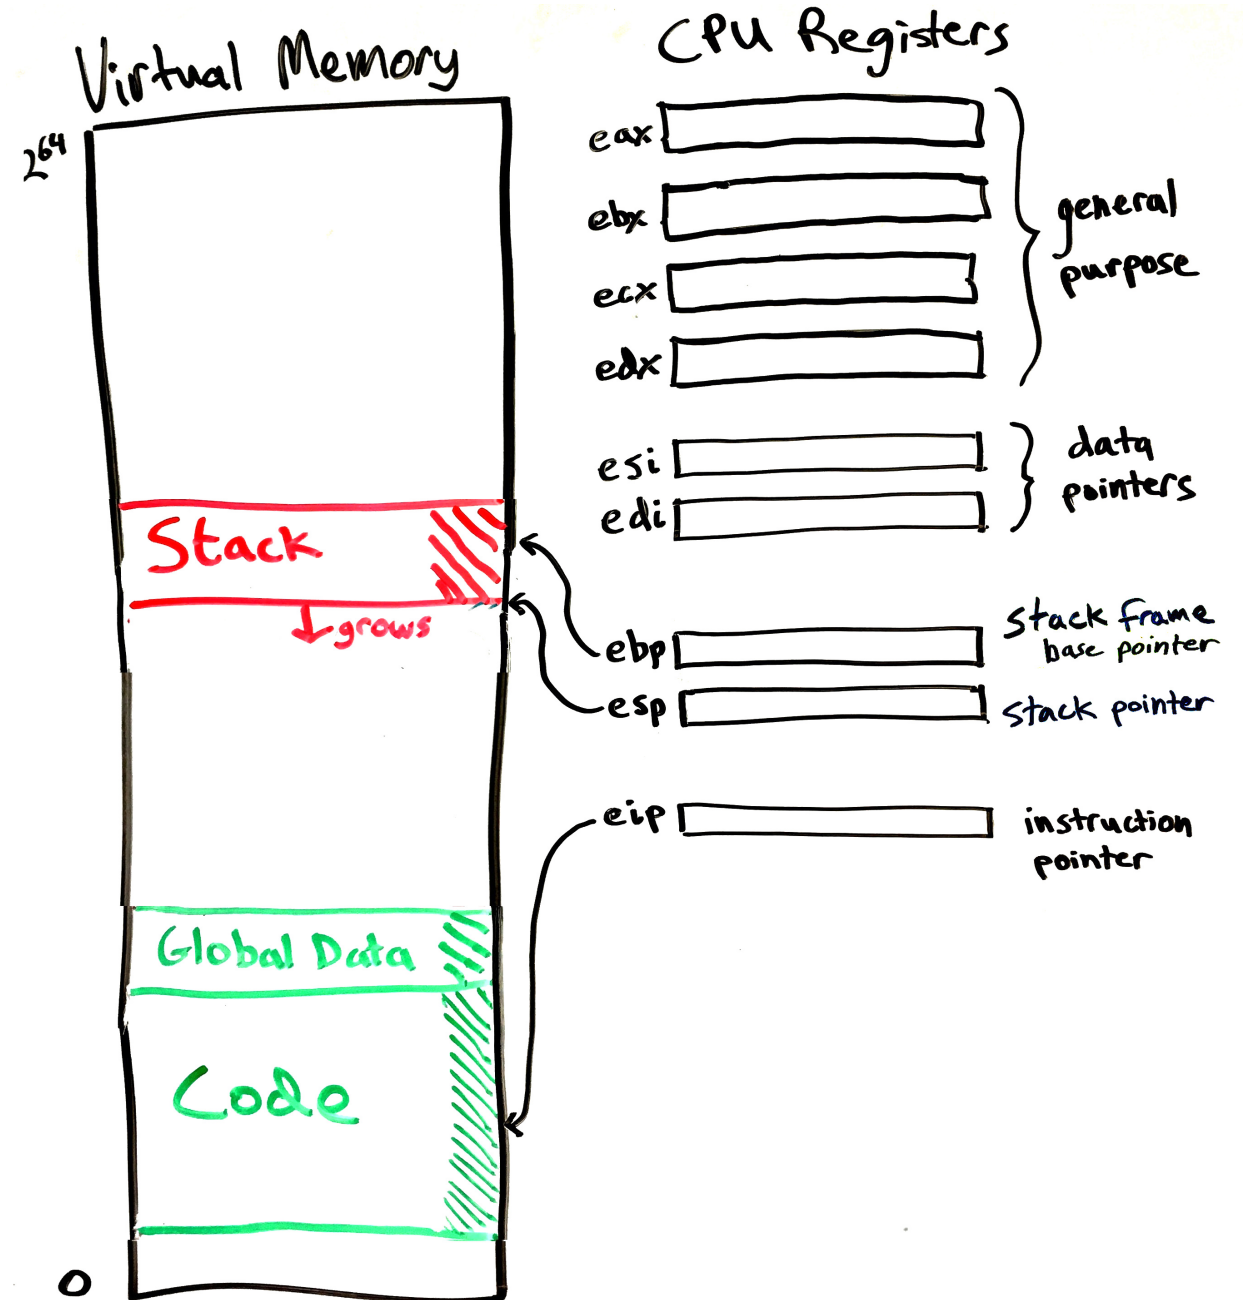 Virtual Memory
2^64
Stack
grows
Global Data
Code
0
CPU Registers
eax
ebx
ecx
edx
general
purpose
esi
edi
data
pointers
ebp
stack frame
base pointer
esp
stack pointer
eip
instruction
pointer